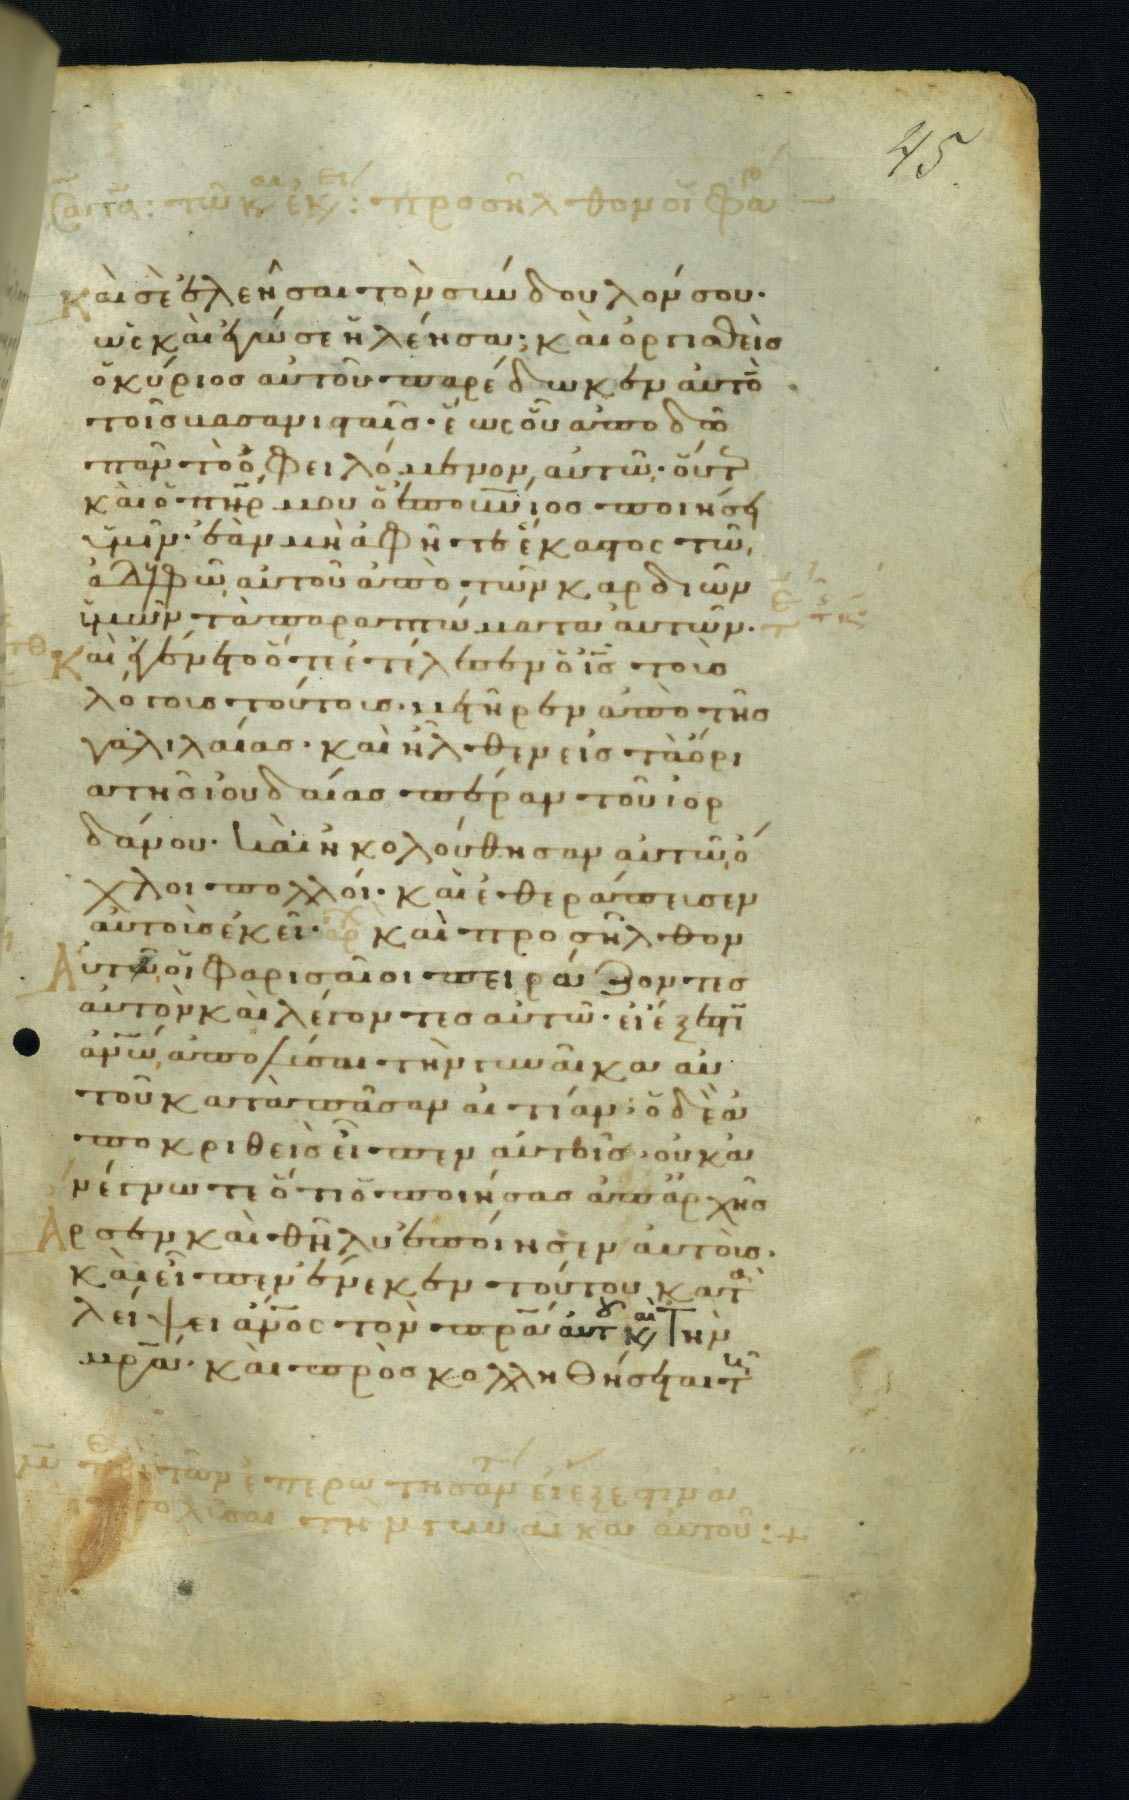 45
καὶ σὲ ἐλεῆσαι τὸν σύνδουλόν σου·
ὡς καὶ ἐγώ σε ἠλέησα; καὶ ὀργισθεὶσ
ὁ κύριοσ αὐτοῦ παρέδωκεν αὐτὸ
τοῖσ βασανισταῖσ· ἕως οὗ ἀποδῶ
πᾶν τὸ ὀφειλόμενον αὐτῶ· οὕτ
καὶ ὁ πη̅ρ μου ὁ ἐπουν̅ιοσ ποιήσει
ὑμῖν· ἐὰν μὴ ἀφῆτε ἕκαστος τῶ
ἀδελφῶ αὐτοῦ ἀπὸ τῶν καρδιῶν
ὑμῶν τὰ παραπτώματα αὐτῶν·
Καὶ ἐγένετο ὅτε ἐτέλεσεν ὁ ι̅σ̅ τοὺσ
λόγουσ τούτουσ· μετῆρεν ἀπὸ τῆσ
γαλιλαίασ· καὶ ἦλθεν εἰσ τὰ ὅρι
α τῆσ ἰουδαίασ πέραν τοῦ ἰορ
δάνου· καὶ ἠκολούθησαν αὐτῶ ὄ
χλοι πολλοί· καὶ ἐθεράπευσεν
αὐτοὺσ ἐκεῖ· καὶ προσῆλθον
Αὐτῶ οἱ φαρισαῖοι πειράζοντεσ
αὐτὸν καὶ λέγοντεσ αὐτῶ· εἰ ἔξεστι
αν̅ω̅ ἀπολῦσαι τὴν γυναῖκα αὐ
τοῦ κατὰ πᾶσαν αἰτίαν; ὁ δὲ ἀ
ποκριθεὶσ εἶπεν αὐτοῖσ· οὐκ ἀ
νέγνωτε ὅτι ὁ ποιήσασ ἀπ ἀρχῆσ
Ἄρσεν καὶ θῆλυ ἐποίησεν αὐτούσ·
καὶ εἶπεν ἕνεκεν τούτου κατα
λείψει αν̅ος τὸν πρ̅α αὐτου καὶ Τὴν
μρ̅α· καὶ προσκολληθήσεται τῆ
προσῆλθον οἱ φα
ἐπερώτησαν εἰ ἔξεστιν ἀ
πολῦσαι τὴν γυναῖκα αὐτοῦ:+